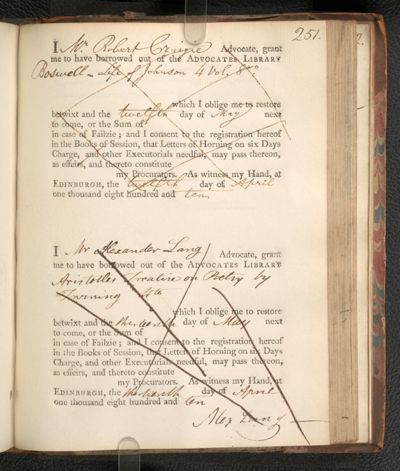 251.
I Mr Robert Craigie Advocate, grant
me to have borrowed out of the ADVOCATES LIBRARY
Boswell - Life of Johnson 4 Vol. 8vo
which I oblige me to restore
betwixt and the twelfth day of May next
to come, or the Sum of
in case of Failzie; and I consent to the registration hereof
in the Books of Session, that Letters of Horning on six Days
Charge, and other Executorials needful, may pass thereon,
as effeirs, and thereto constitute
my Procurators. As witness my Hand, at
EDINBURGH, the twelfth day of April
one thousand eight hundred and ten
I Mr Alexander Lang Advocate, grant
me to have borrowed out of the ADVOCATES LIBRARY
Aristotles Treatise on Poetry by
Twining 4to
which I oblige me to restore
betwixt and the thirteenth day of May next
to come, or the Sum of
in case of Failzie; and I consent to the registration hereof
in the Books of Session, that Letters of Horning on six Days
Charge, and other Executorials needful, may pass thereon,
as effeirs, and thereto constitute
my Procurators. As witness my Hand, at
EDINBURGH, the thirteenth day of April
one thousand eight hundred and ten
Alex Lang